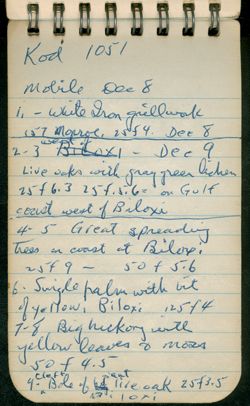 Kod 1051
Mobile Dec 8
1, - White Iron grillwork
157 Monroe, 25 f 9. Dec 8
2-3 west of Biloxi - Dec 9
Live oaks with gray green lichen
25 f 6.3 25 f 5.6 on Gulf
coast west of Biloxi
4-5 Great spreading
trees on coast at Biloxi
25 f 9 - 50 f 5.6
6. Single palm with bit
of yellow, Biloxi 125 f 4
7-8 Big hickory with
yellow leaves & moss
50 f 4.5
9. Bole of giant live oak 25 f 3.5